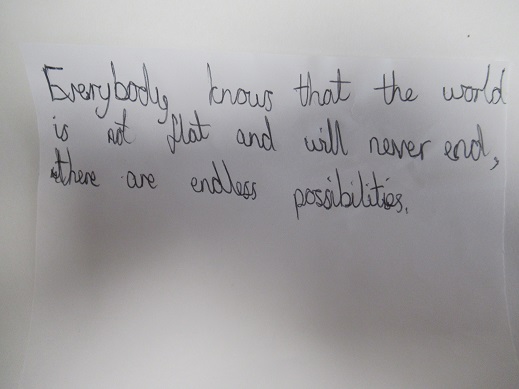 Everybody knows that the world
is not flat and will never end,
there are endless possibilities.